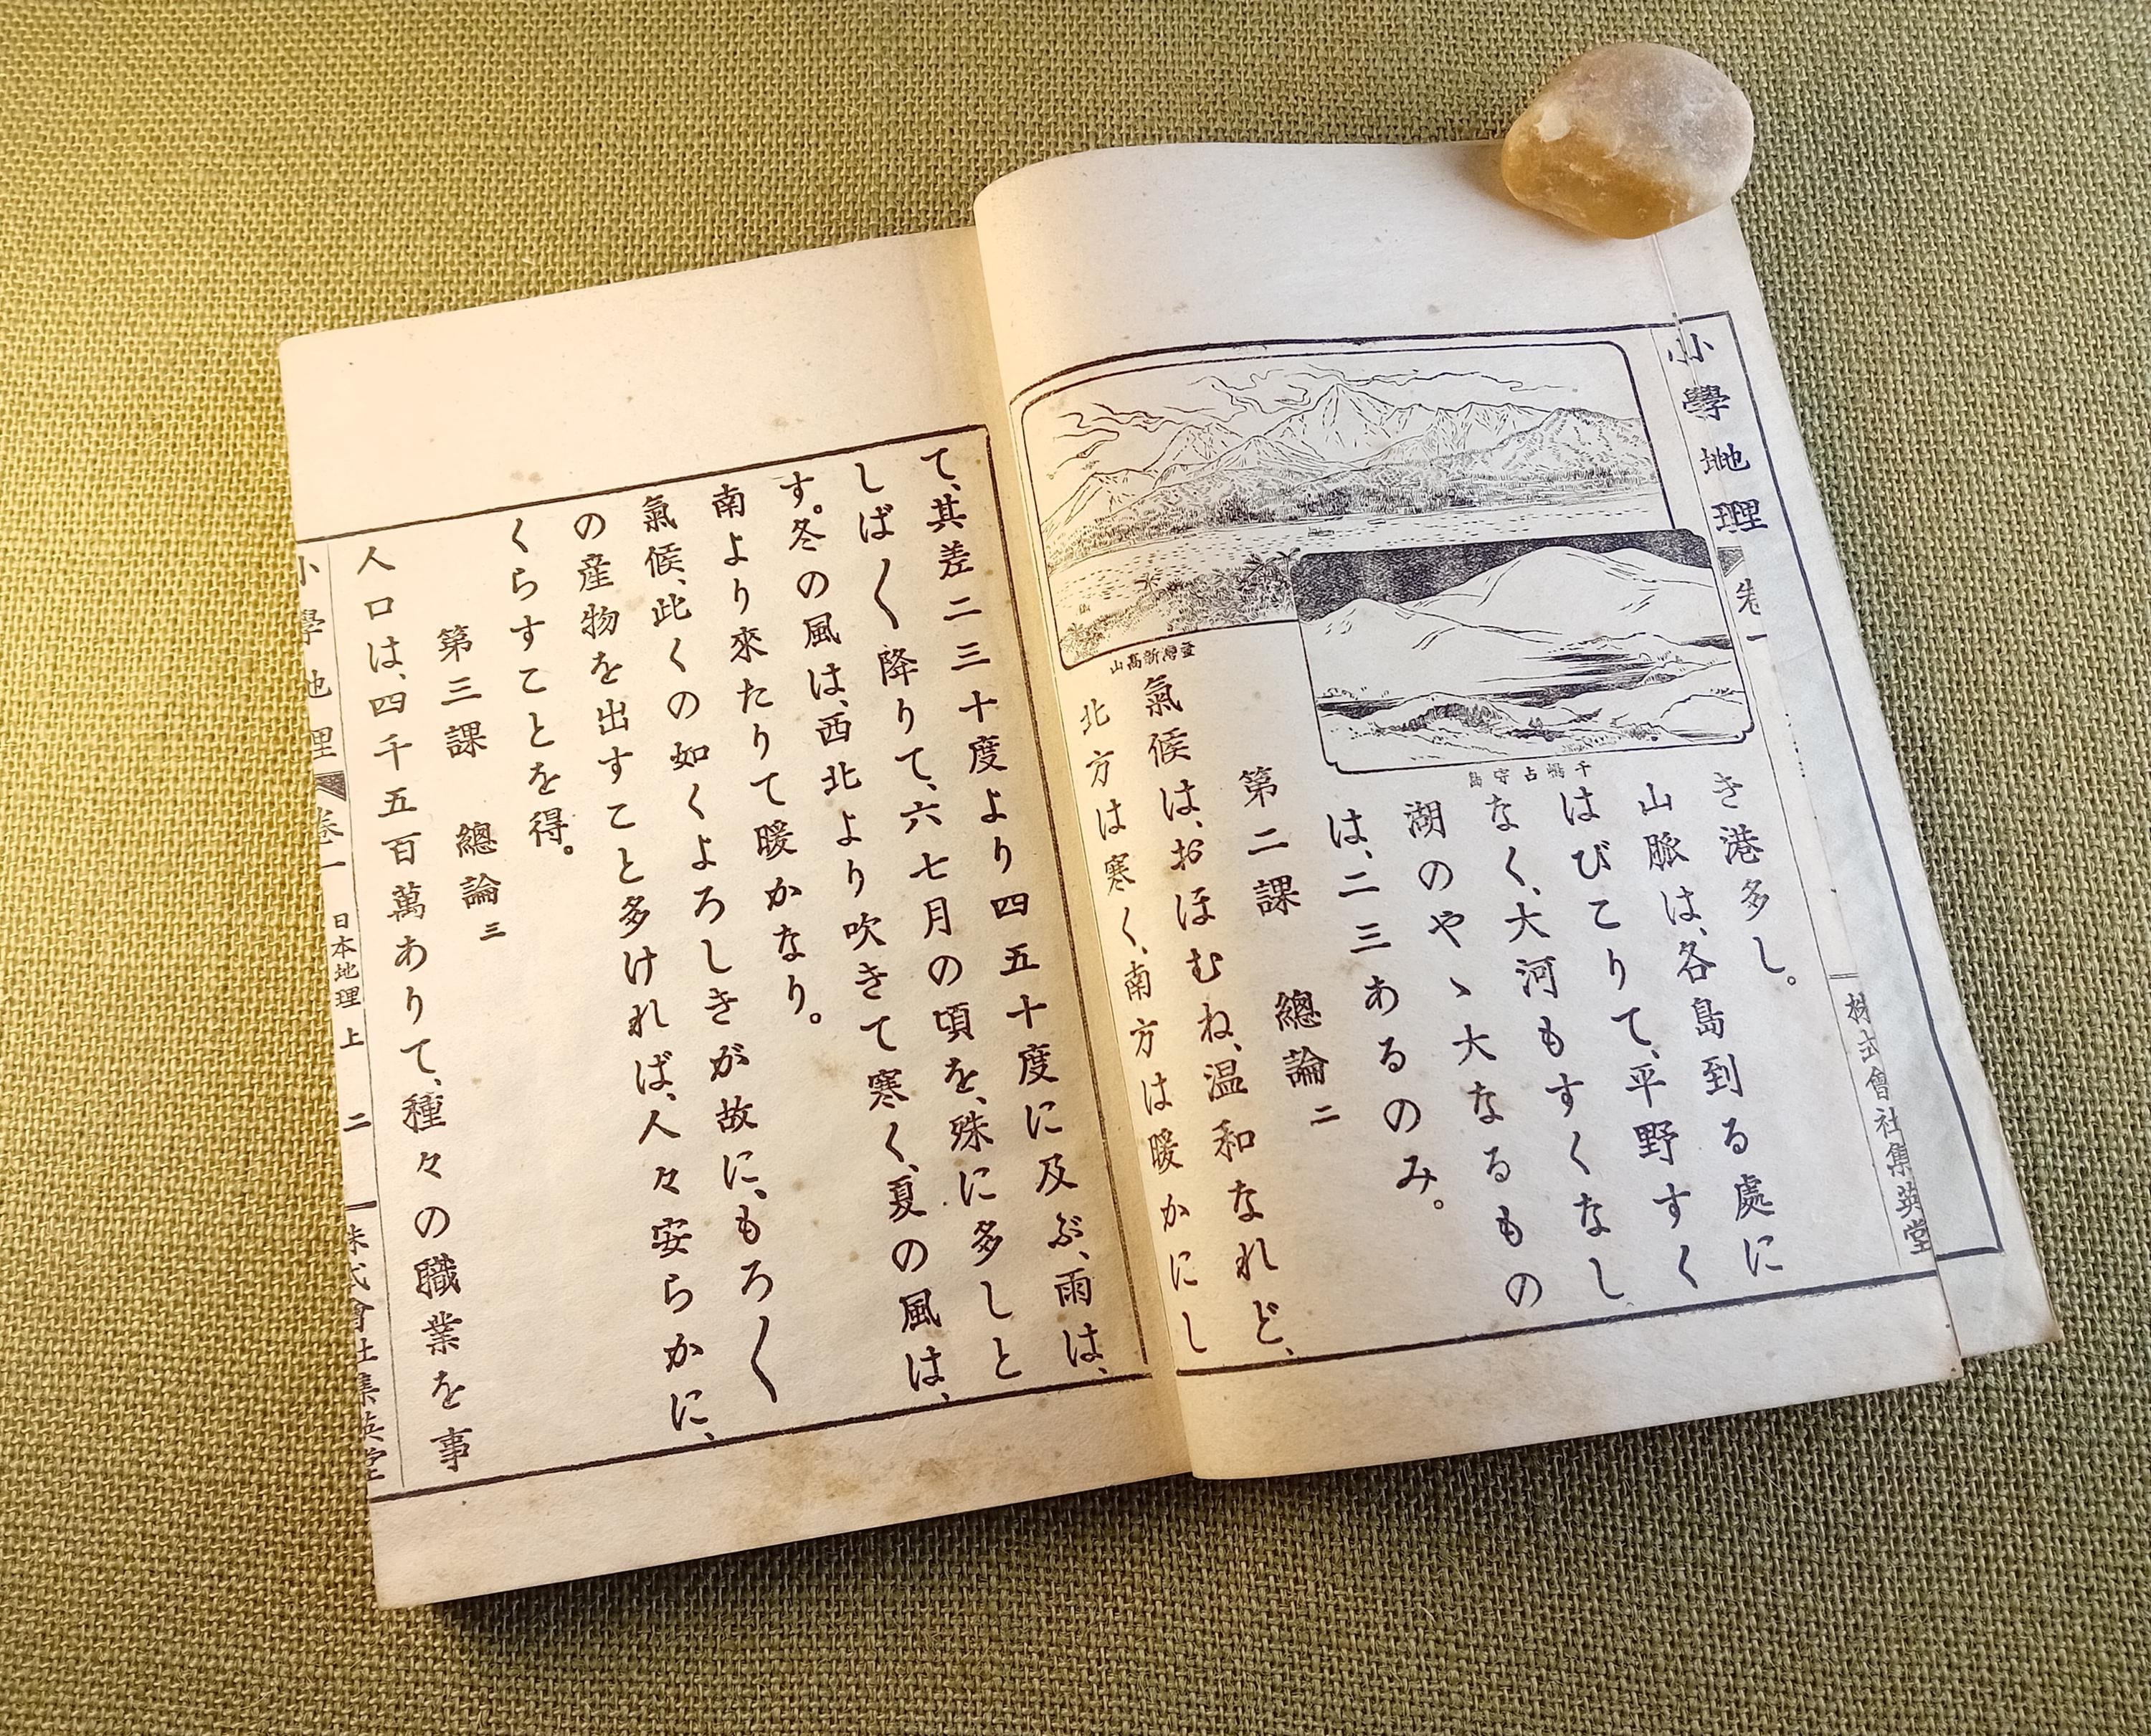 小學地理
卷一
株式會社集英堂
臺灣新高山
千島占守島
き港多し。
山脈は、各島到る處に
はびこりて、平野すく
なく、大河もすくなし
湖のやゝ大なるもの
は、二三あるのみ。
第二課 總論 二
氣候は、おほむね、温和なれど、
北方は寒く、南方は暖かにし
て、其差二三十度より四五十度に及ぶ、雨は、
しば〱降りて、六七月の頃を、殊に多しと
す。冬の風は、西北より吹きて寒く、夏の風は、
南より來たりて暖かなり。
氣候、此くの如くよろしきが故に、もろ〱
の産物を出すこと多ければ、人々安らかに、
くらすことを得。
第三課 總論 三
人口は、四千五百萬ありて、種々の職業を事
小學地理 卷一 日本地理 上 二 株式會社集英堂